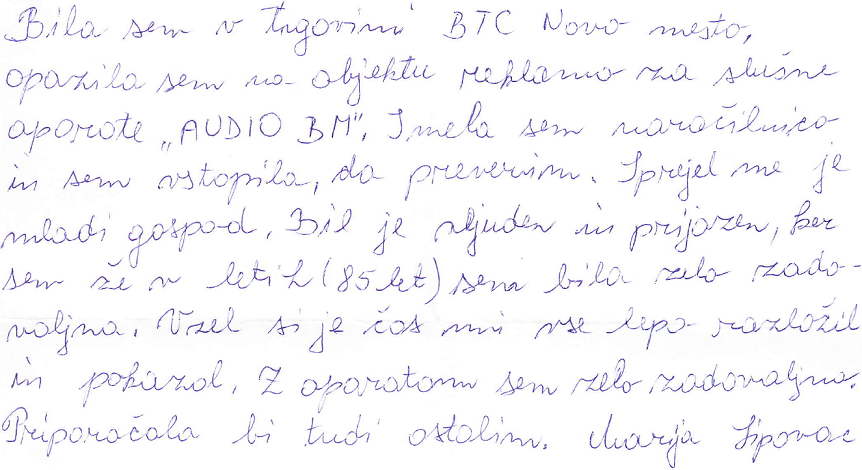 Bila sem v trgovini BTC Novo mesto,
opazila sem na objektu reklamo za slušne
aparate „AUDIO BM". Imela sem naročilnico
in sem vstopila, da preverim. Sprejel me je
mladi gospod. Bil je vljuden in prijazen, ker
sem že v letih (85 let) sem bila zelo zado-
voljna. Vzel si je čas mi vse lepo razložil
in pokazal. Z aparatom sem zelo zadovoljna.
Priporočala bi tudi ostalim. Marija Lipovac